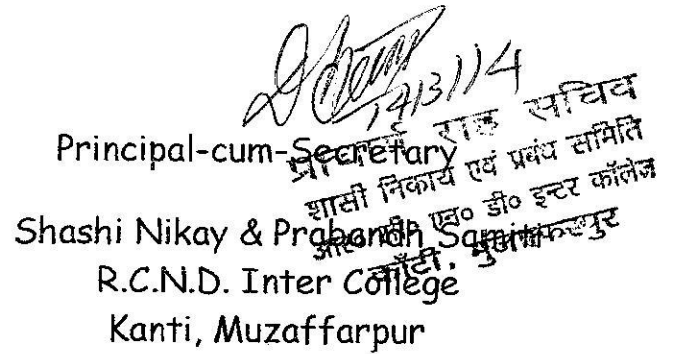 14/3/14
Principal-cum-Secretary
Shashi Nikay & Prabandh Samiti
R.C.N.D. Inter College
Kanti, Muzaffarpur
प्राचार्य सह सचिव
शासी निकाय एवं प्रबंध समिति
आर० सी० एन० डी० इन्टर कॉलेज
काँटी, मुजफ्फरपुर